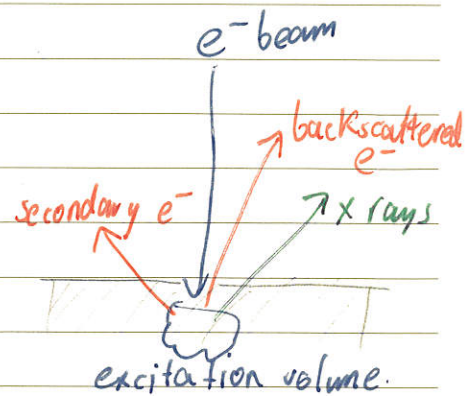 e⁻ beam
backscattered
e⁻
secondary e⁻
x rays
excitation volume.